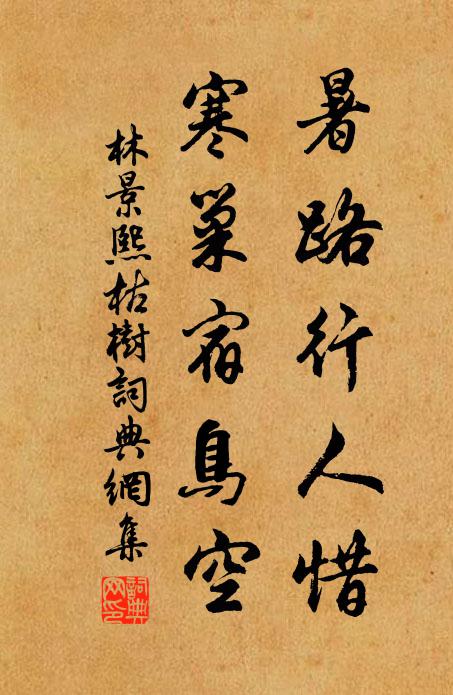 暑路行人惜
寒巢宿鳥空
林景熙枯樹詞典網集
詞典網印